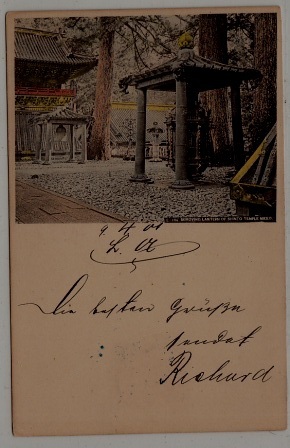 REVOLVING LANTERN OF SHINTO TEMPLE NIKKO.
9. 4. 01
L. A
Die besten Grüße
sendet
Richard